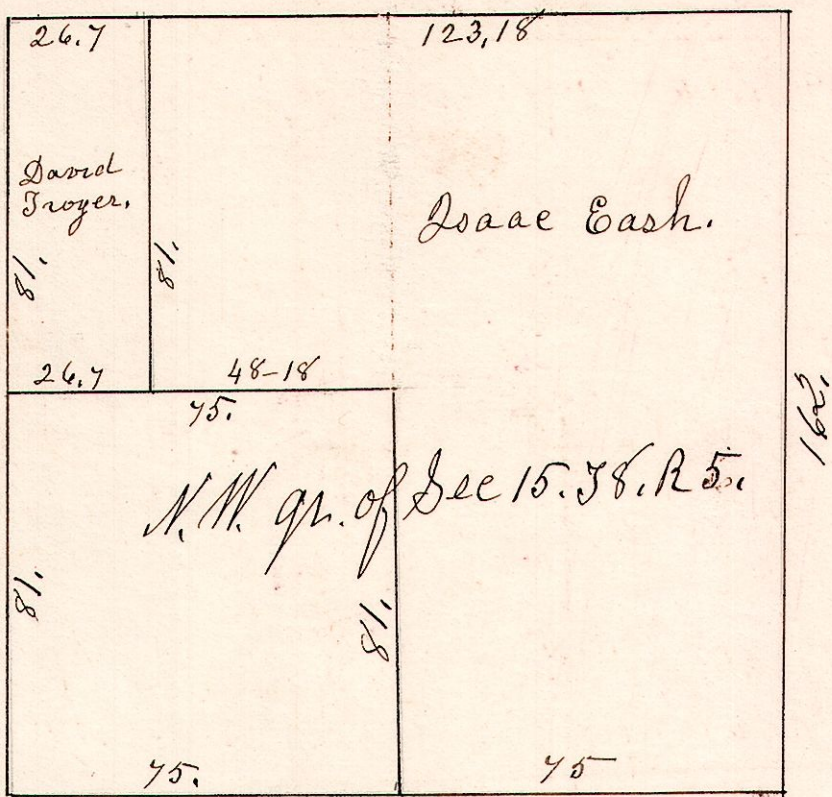 26.7
123,18
David
Troyer.
Isaac Eash.
81.
81.
26.7
48-18
162,
75.
N.W. qr. of Sec 15. T8. R 5.
81.
81.
75.
75